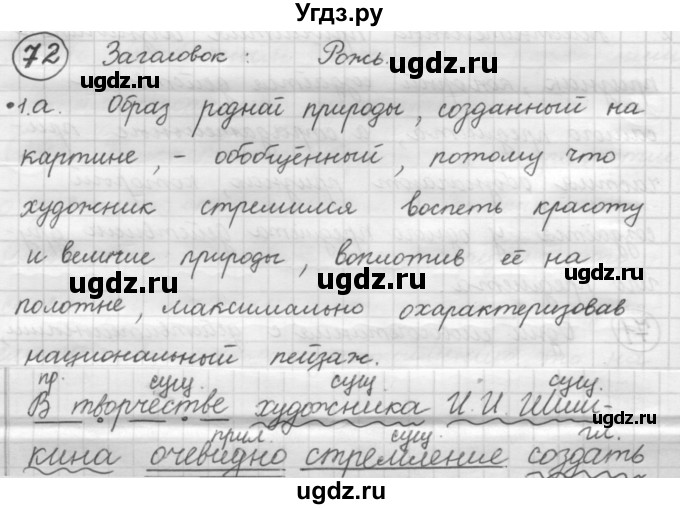 Угдз.ру
72 Заголовок: Рожь.
•1.а. Образ родной природы, созданный на
картине, - обобщённый, потому что
художник стремился воспеть красоту
и величие природы, воплотив её на
полотне, максимально охарактеризовав
национальный пейзаж.
пр. сущ. сущ. сущ.
В творчестве художника И.И.Шиш-
прил. сущ. гл.
кина очевидно стремление создать
ugdz.ru ugdz.ru
ugdz.ru ugdz.ru ugdz.ru
ugdz.ru ugdz.ru
ugdz.ru ugdz.ru ugdz.ru
ugdz.ru